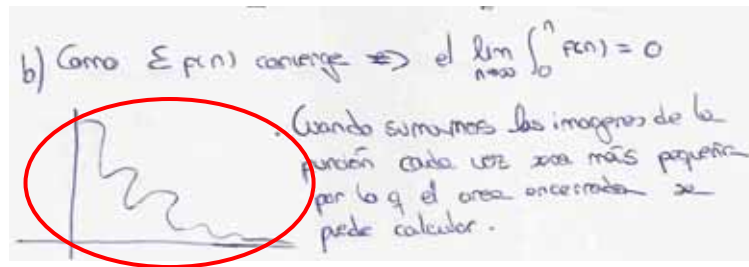 b) Como Σ f(n) converge => el lim n→∞ ∫₀ⁿ f(n) = 0
. Cuando sumamos las imagenes de la
función cada vez sea más pequeña
por lo q el area encerrada se
puede calcular.